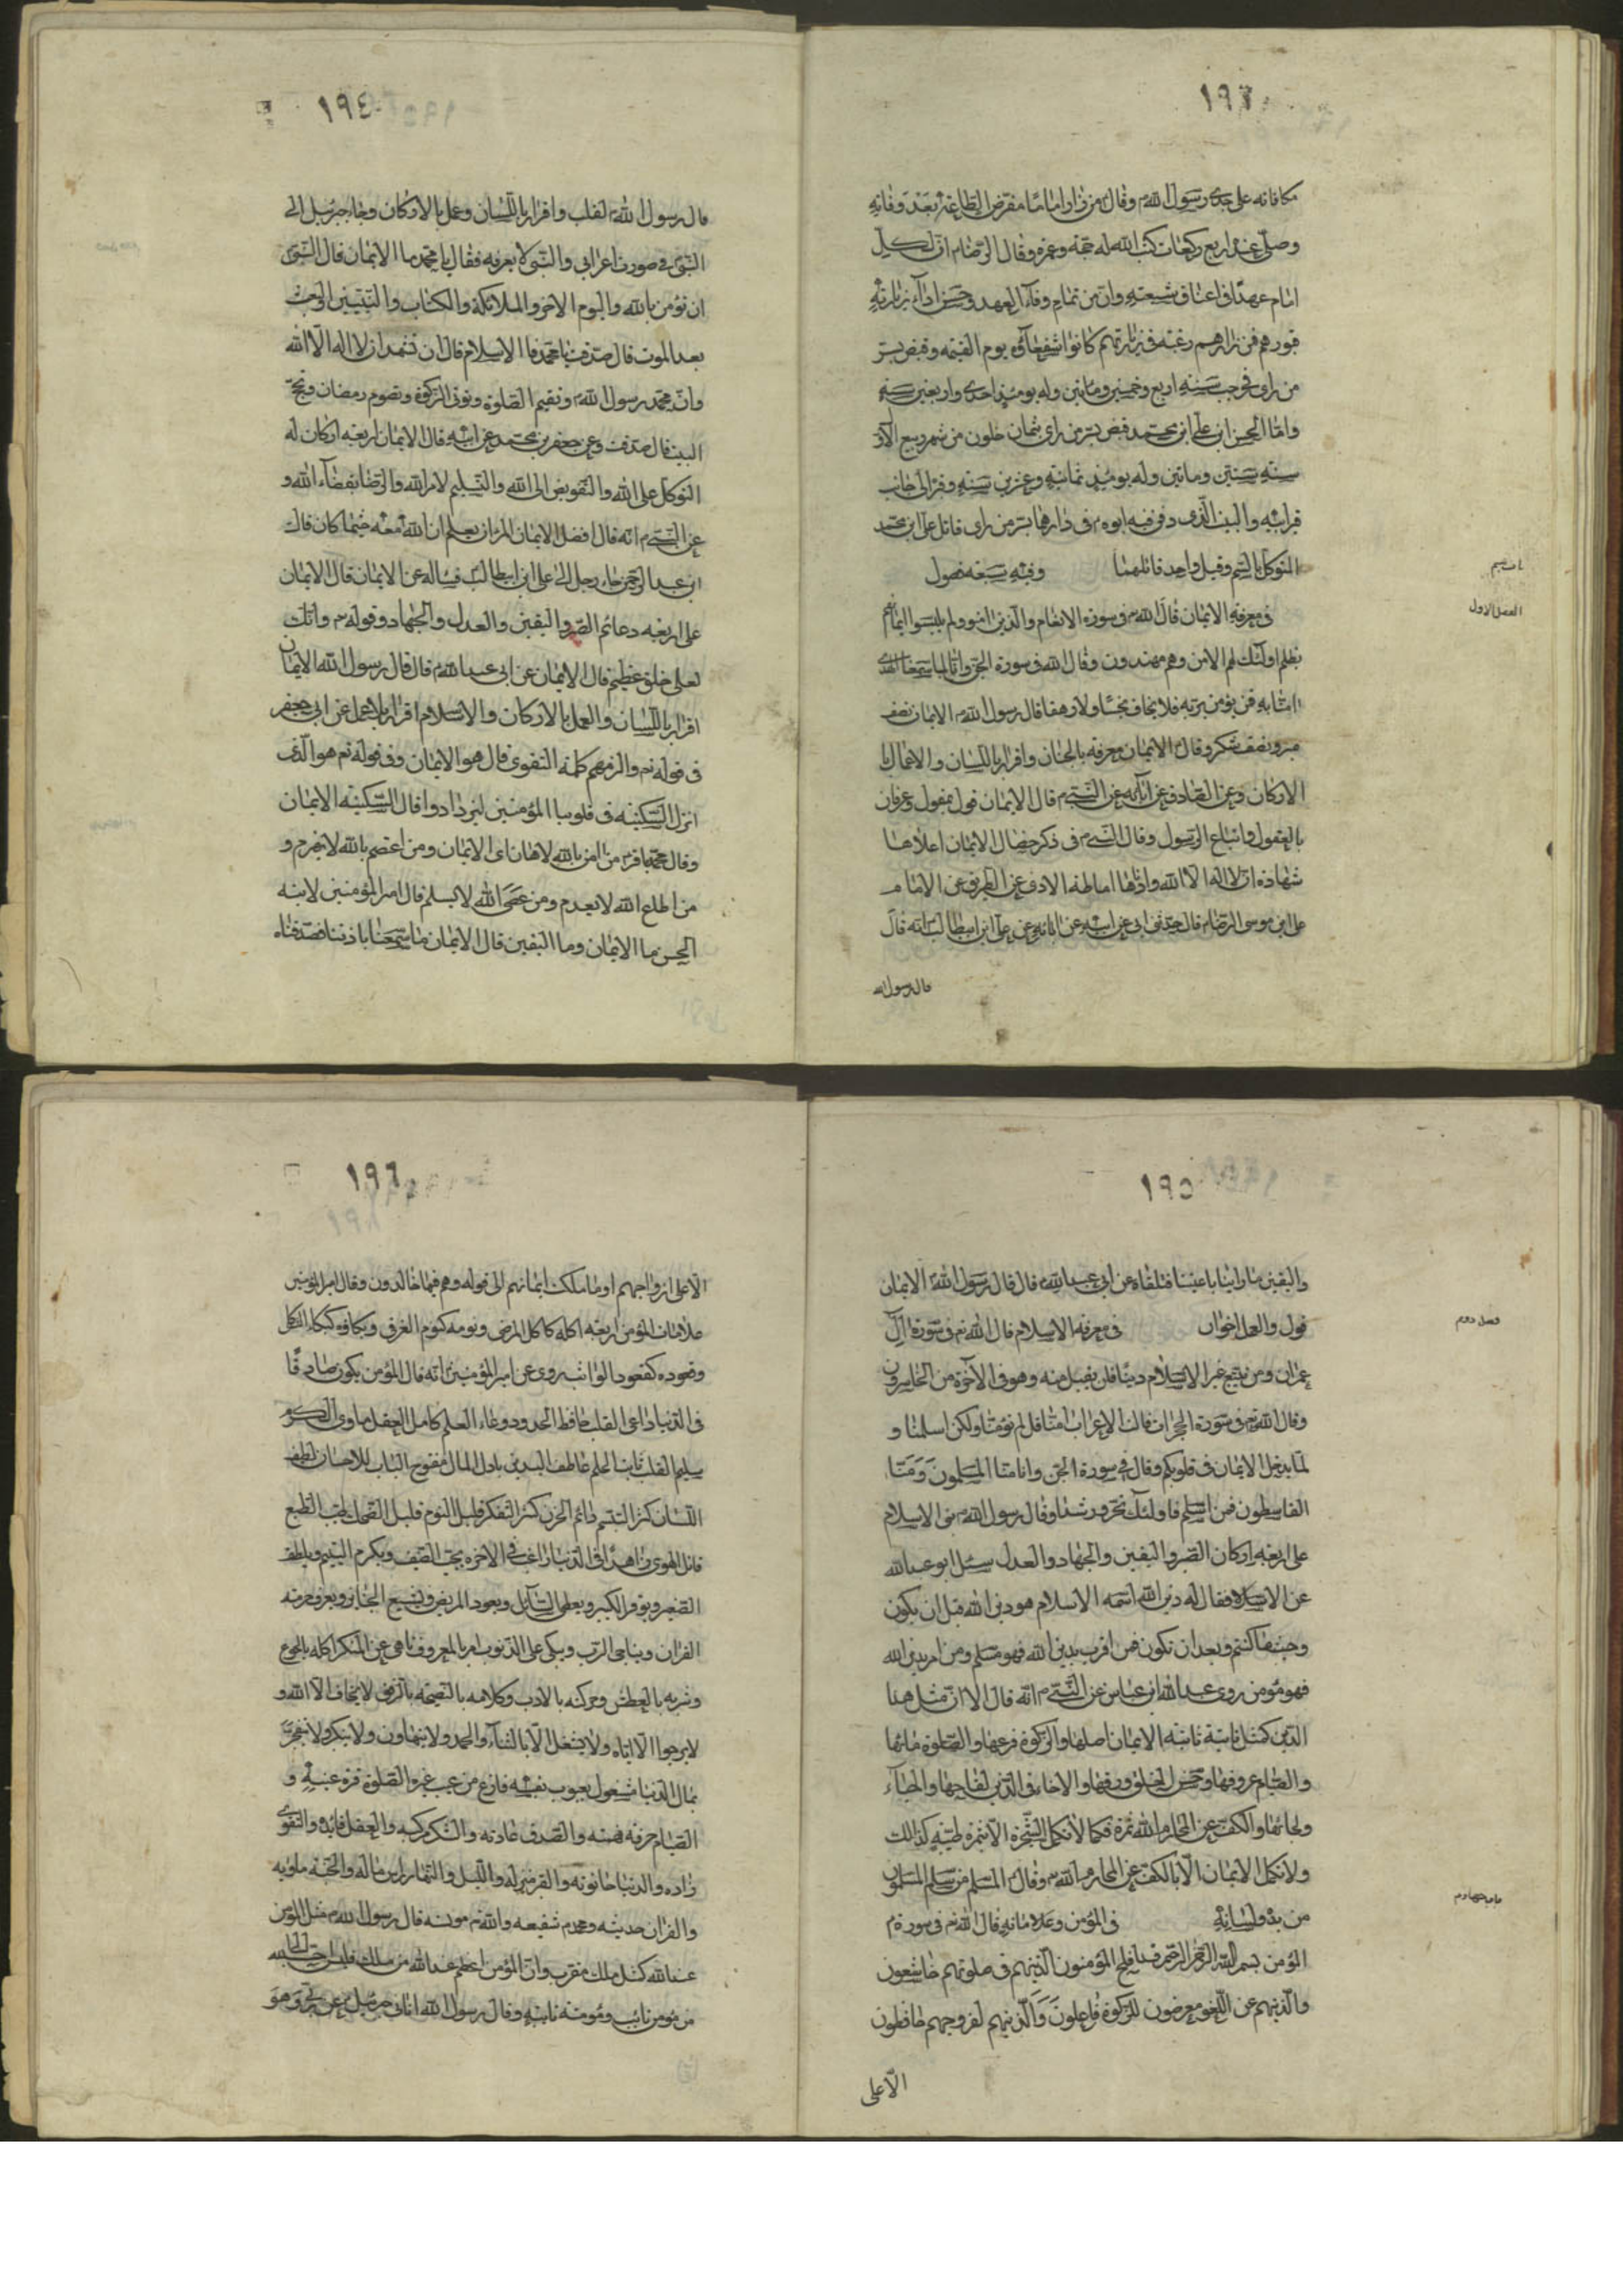 ١٩٣
مكافاته على جدى رسول الله وقال من زار اماما مفترض الطاعة بعد وفاته
وصلى عنده اربع ركعات كتب الله له حجة وعمرة وقال الرضا ان لكل
امام عهدا فى اعناق شيعته وان من تمام وفاء العهد وحسن اداء زيارة
قبورهم فمن زارهم رغبة فى زيارتهم كانوا شفعاؤه يوم القيمه وقبض بسر
من راى فى رجب سنه اربع وخمسين وماتين وله يومئذ احدى واربعين سنه
واما الحسن ابن على ابن محمد قبض بسر من راى ثمان خلون من شهر ربيع الاول
سنه ستين وماتين وله يومئذ ثمانيه وعشرين سنه وقبره الى جانب
قبر ابيه والبيت الذى دفن فيه ابوه فى دارهما بسر من راى قاتل على ابن محمد
المتوكل بالسم وقيل واحد قاتلهما وفيه سبعه فصول
الفصل الاول
فى معرفه الايمان قال الله فى سورة الانعام والذين امنوا ولم يلبسوا ايمانهم
بظلم اولئك لهم الامن وهم مهتدون وقال الله فى سورة الجن وانا لما سمعنا الهدى
امنا به فمن يؤمن بربه فلا يخاف بخسا ولا رهقا قال رسول الله الايمان نصف
صبر ونصف شكر وقال الايمان معرفه بالجنان واقرار باللسان والاعمال با
الاركان وعن الصادق عن آبائه عن النبى قال الايمان قول بمقول وعرفان
بالعقول واتباع الرسول وقال النبى فى ذكر خصال الايمان اعلاها
شهادة ان لا اله الا الله وادناها اماطه الاذى عن الطريق عن الامام
على ابن موسى الرضا قال حدثنى ابى عن ابيه عن ابائه عن على ابن ابيطالب انه قال
قال رسول الله
١٩٤
قال رسول الله لقلب واقرار باللسان وعمل بالاركان وجاء جبرئيل الى
النبى فى صورة اعرابى والنبى لا يعرفه فقال يا محمد ما الايمان قال النبى
ان تؤمن بالله واليوم الاخر والملائكه والكتاب والنبيين والبعث
بعد الموت قال صدقت يا محمد فما الاسلام قال ان تشهد ان لا اله الا الله
وان محمد رسول الله وتقيم الصلوة وتوتى الزكوة وتصوم رمضان وتحج
البيت قال صدقت وعن جعفر بن محمد عن ابيه قال الايمان اربعه اركان له
التوكل على الله والتفويض الى الله والتسليم لامر الله والرضا بقضاء الله و
عن النبى انه قال افضل الايمان المر ان يعلم ان الله معه حيثما كان قال
ابن عبد الرحمن جاء رجل الى على ابن ابيطالب فسأله عن الايمان قال الايمان
على اربعه دعائم الصبر واليقين والعدل والجهاد وقوله وانك
لعلى خلق عظيم قال الايمان عن ابى عبد الله قال قال رسول الله الايمان
اقرار باللسان والعمل بالاركان والاسلام اقرار بلا عمل عن ابى جعفر
فى قوله تم والزمهم كلمه التقوى قال هو الايمان وفى قوله تم هو الذى
انزل السكينه فى قلوب المؤمنين ليزدادوا قال السكينه الايمان
وقال محمد باقر من امن بالله لاهان اى الايمان ومن اعتصم بالله لا يغرم و
من اطلع الله لا يعدم ومن عصى الله لا يسلم قال امير المؤمنين لابنه
الحسن ما الايمان وما اليقين قال الايمان ما سمعنا باذننا فصدقناه
١٩٥
واليقين ما راينا باعيننا فتلقاه عن ابى عبد الله قال قال رسول الله الايمان
فصل دوم
قول والعمل اخوان فى معرفه الاسلام قال الله تم فى سورة آل
عمران ومن يبتغ غير الاسلام دينا فلن يقبل منه وهو فى الآخرة من الخاسرون
وقال الله تم فى سورة الحجرات قالت الاعراب امنا قل لم تؤمنا ولكن اسلمنا و
لما يدخل الايمان فى قلوبكم وقال فى سورة الجن وانا منا المسلمون ومنا
القاسطون فمن اسلم فاولئك تحروا رشدا وقال رسول الله بنى الاسلام
على اربعه اركان الصبر واليقين والجهاد والعدل سئل ابو عبد الله
عن الاسلام فقال له دين الله اسمه الاسلام هو دين الله قبل ان يكون
وحيثما كنتم وبعد ان تكون فمن اقرب بدين الله فهو مسلم ومن امر بدين الله
فهو مومن روى عبد الله ابن عباس عن النبى انه قال الا ان مثل هذا
الدين كمثل ثابتة الايمان اصلها والزكوة فرعها والصلوة مائها
والصيام عروقها وحسن الخلق ورقها والاخاء فى الدين لقاحها والحياء
ولحائها والكف عن المحارم الله ثمرة فكما لا تكمل الشجرة الا بثمرة طيبه كذالك
ولا تكمل الايمان الا بالكف عن المحارم الله وقال المسلم من سلم المسلمون
من يده ولسانه فى المؤمن وعلاماته قال الله تم فى سورة
المؤمن بسم الله الرحمن الرحيم قد افلح المؤمنون الذينهم فى صلوتهم خاشعون
والذينهم عن اللغو معرضون للزكوة فاعلون والذينهم لفروجهم حافظون
الا على
١٩٦
الا على ازواجهم او ما ملكت ايمانهم الى قوله وهم فيها خالدون وقال امير المؤمنين
علامات المؤمن اربعه اكله كاكل المرضى ونومه كنوم الغرقى وبكاؤه كبكاء الثكلى
وقعوده كقعود الواثب روى عن امير المؤمنين انه قال المؤمن يكون صادقا
فى الدنيا داعى القلب حافظ الحدود وعاء العلم كامل العقل ماوى الكرم
سليم القلب ثابت الحلم عاطف اليدين باذل المال مفتوح الباب للاحسان لطيف
اللسان كثير التبسم دائم الحزن كثير التفكر قليل النوم قليل الضحك طيب الطبع
قاتل الهوى زاهدا فى الدنيا راغب فى الاخره يحب الضيف ويكرم اليتيم ويلطف
الصغير ويوقر الكبير ويعطى السائل ويعود المريض ويشيع الجنائز ويعرف حرمه
القران ويناجى الرب ويبكى على الذنوب امر بالمعروف ناهى عن المنكر اكله بالجوع
وشربه بالعطش وحركته بالادب وكلامه بالنصيحه بالرفق لا يخاف الا الله و
لا يرجوا الا اياه ولا يشغل الا بالثناء والحمد ولا يتهاون ولا يتكبر ولا يتفخر
بمال الدنيا مشغول بعيوب نفسه فارغ من عيب غيره الصلوة قرة عينه و
الصيام حرفه همته والصدق عادته والشكر مركبه والعقل قائده والتقوى
زاده والدنيا حانوته والقبر منزله والليل والنهار راس ماله والجنة ماويه
والقران حديثه ومحمد شفيعه والله مونسه قال رسول الله مثل المؤمن
عند الله كمثل ملك مقرب وان المؤمن اعظم عند الله من ملك
من مومن تائب ومومنة تائبه وقال رسول الله اتانى جبرئيل عن ربى وهو